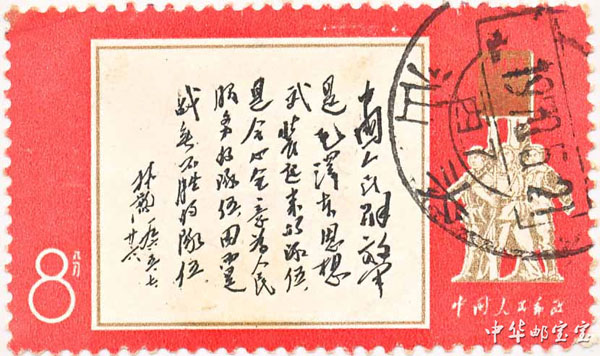 中国人民解放军
是毛澤东思想
武装起来的队伍,
是全心全意为人民
服务的队伍因而是
战无不胜的队伍.
林彪
廿六
8 八分
中国人民邮政
中华邮宝宝